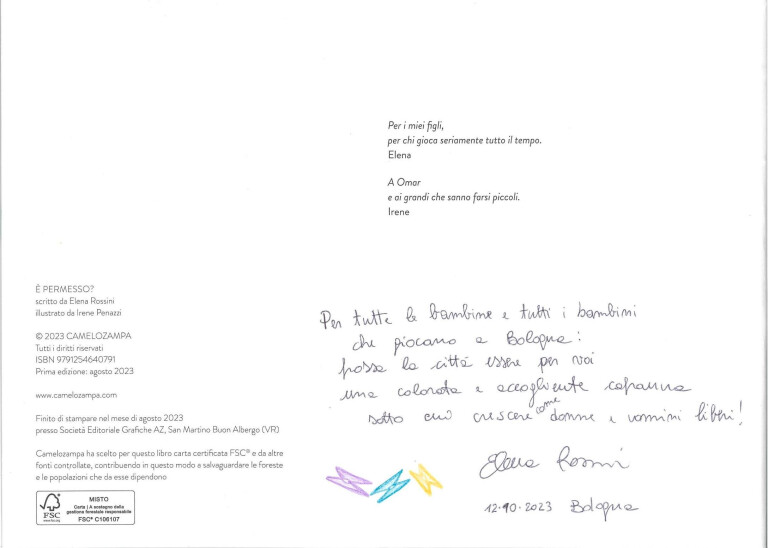 Per i miei figli,
per chi gioca seriamente tutto il tempo.
Elena
A Omar
e ai grandi che sanno farsi piccoli.
Irene
È PERMESSO?
scritto da Elena Rossini
illustrato da Irene Penazzi
© 2023 CAMELOZAMPA
Tutti i diritti riservati
ISBN 9791254640791
Prima edizione: agosto 2023
www.camelozampa.com
Finito di stampare nel mese di agosto 2023
presso Società Editoriale Grafiche AZ, San Martino Buon Albergo (VR)
Camelozampa ha scelto per questo libro carta certificata FSC® e da altre
fonti controllate, contribuendo in questo modo a salvaguardare le foreste
e le popolazioni che da esse dipendono
FSC
www.fsc.org
MISTO
Carta | A sostegno della
gestione forestale responsabile
FSC® C106107
Per tutte le bambine e tutti i bambini
che giocano a Bologna:
possa la città essere per voi
una colorata e accogliente capanna
sotto cui crescere come donne e uomini liberi!
Elena Rossini
12.10.2023 Bologna